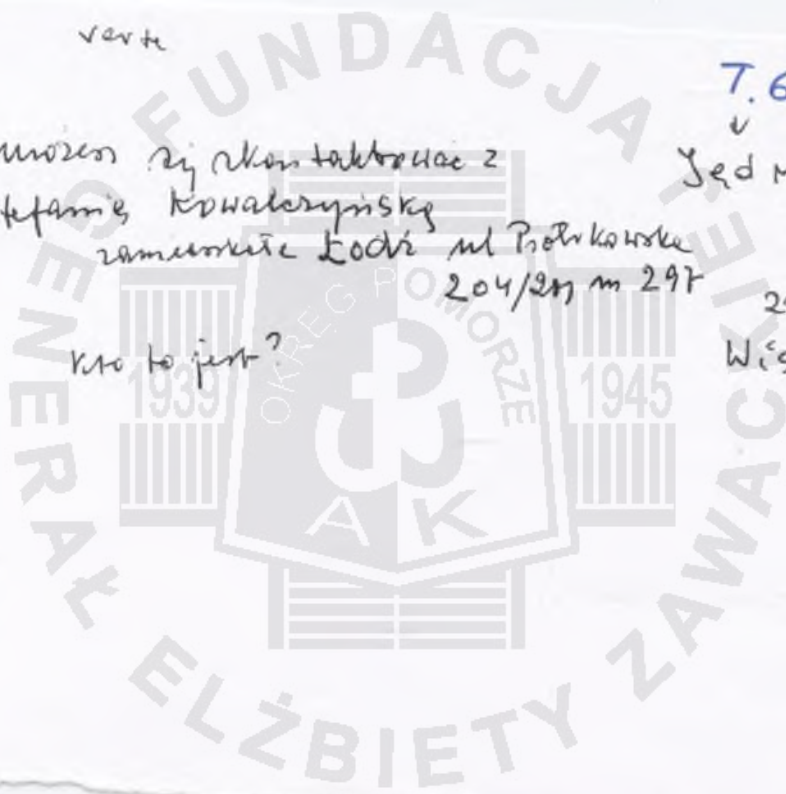 verte
T. 6
możesz się skontaktować z
Jęd
Kowalczyńską
zamieszkałe Łódź ul Piotrkowska
204/210 m 297
kto to jest?
FUNDACJA
GENERAŁ ELŻBIETY ZAWACKIEJ
OKRĘG POMORZE
1939
1945
AK